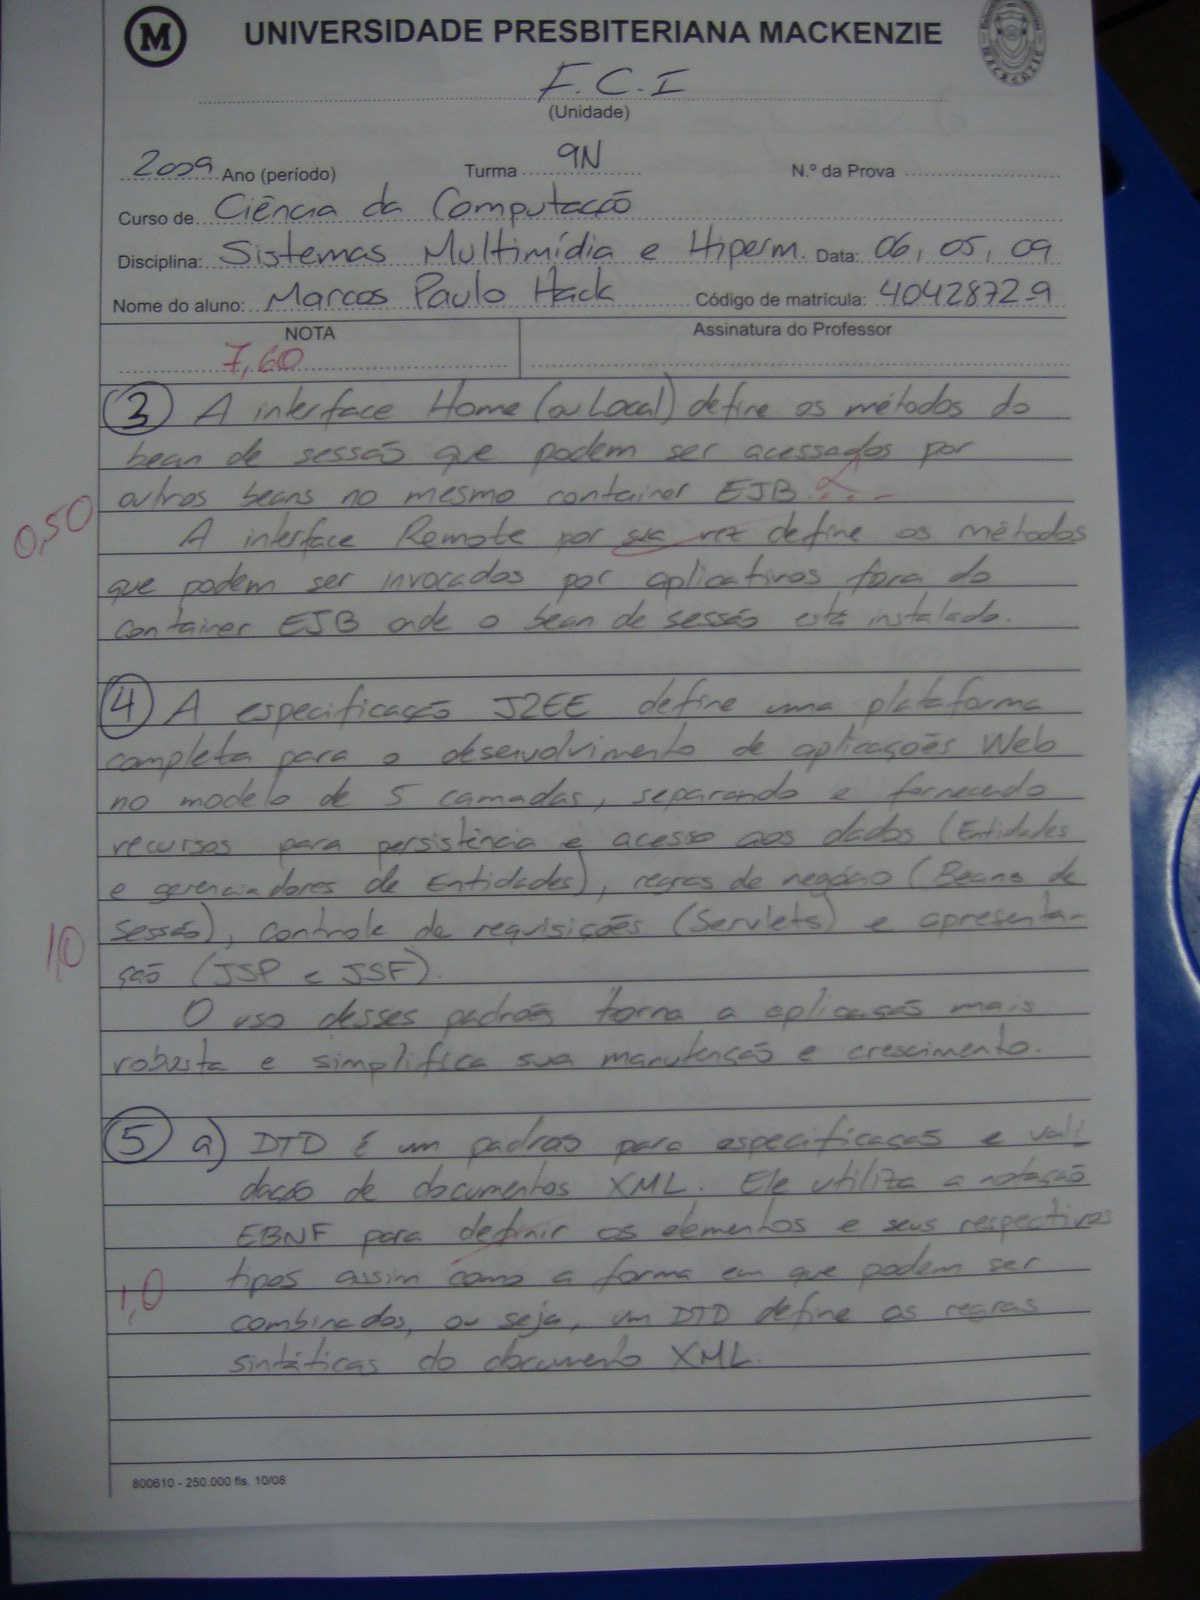 M UNIVERSIDADE PRESBITERIANA MACKENZIE
F.C.I
(Unidade)
2009 Ano (período) Turma 9N N.º da Prova
Curso de Ciência da Computação
Disciplina: Sistemas Multimídia e Hiperm. Data: 06, 05, 09
Nome do aluno: Marcos Paulo Hack Código de matrícula: 4042872-9
NOTA Assinatura do Professor
7,60
3 A interface Home (ou Local) define os métodos do
bean de sessão que podem ser acessados por
outros beans no mesmo container EJB
0,50
A interface Remote por sua vez define os métodos
que podem ser invocados por aplicativos fora do
container EJB onde o bean de sessão está instalado.
4 A especificação J2EE define uma plataforma
completa para o desenvolvimento de aplicações Web
no modelo de 5 camadas, separando e fornecendo
recursos para persistência e acesso aos dados (Entidades
e gerenciadores de Entidades), regras de negócio (Beans de
Sessão), controle de requisições (Servlets) e apresenta-
1,0
ção (JSP e JSF).
O uso desses padrões torna a aplicação mais
robusta e simplifica sua manutenção e crescimento.
5 a) DTD é um padrão para especificação e vali-
dação de documentos XML. Ele utiliza a notação
EBNF para definir os elementos e seus respectivos
tipos assim como a forma em que podem ser
1,0
combinados, ou seja, um DTD define as regras
sintáticas do documento XML.
800610 - 250.000 fls. 10/08